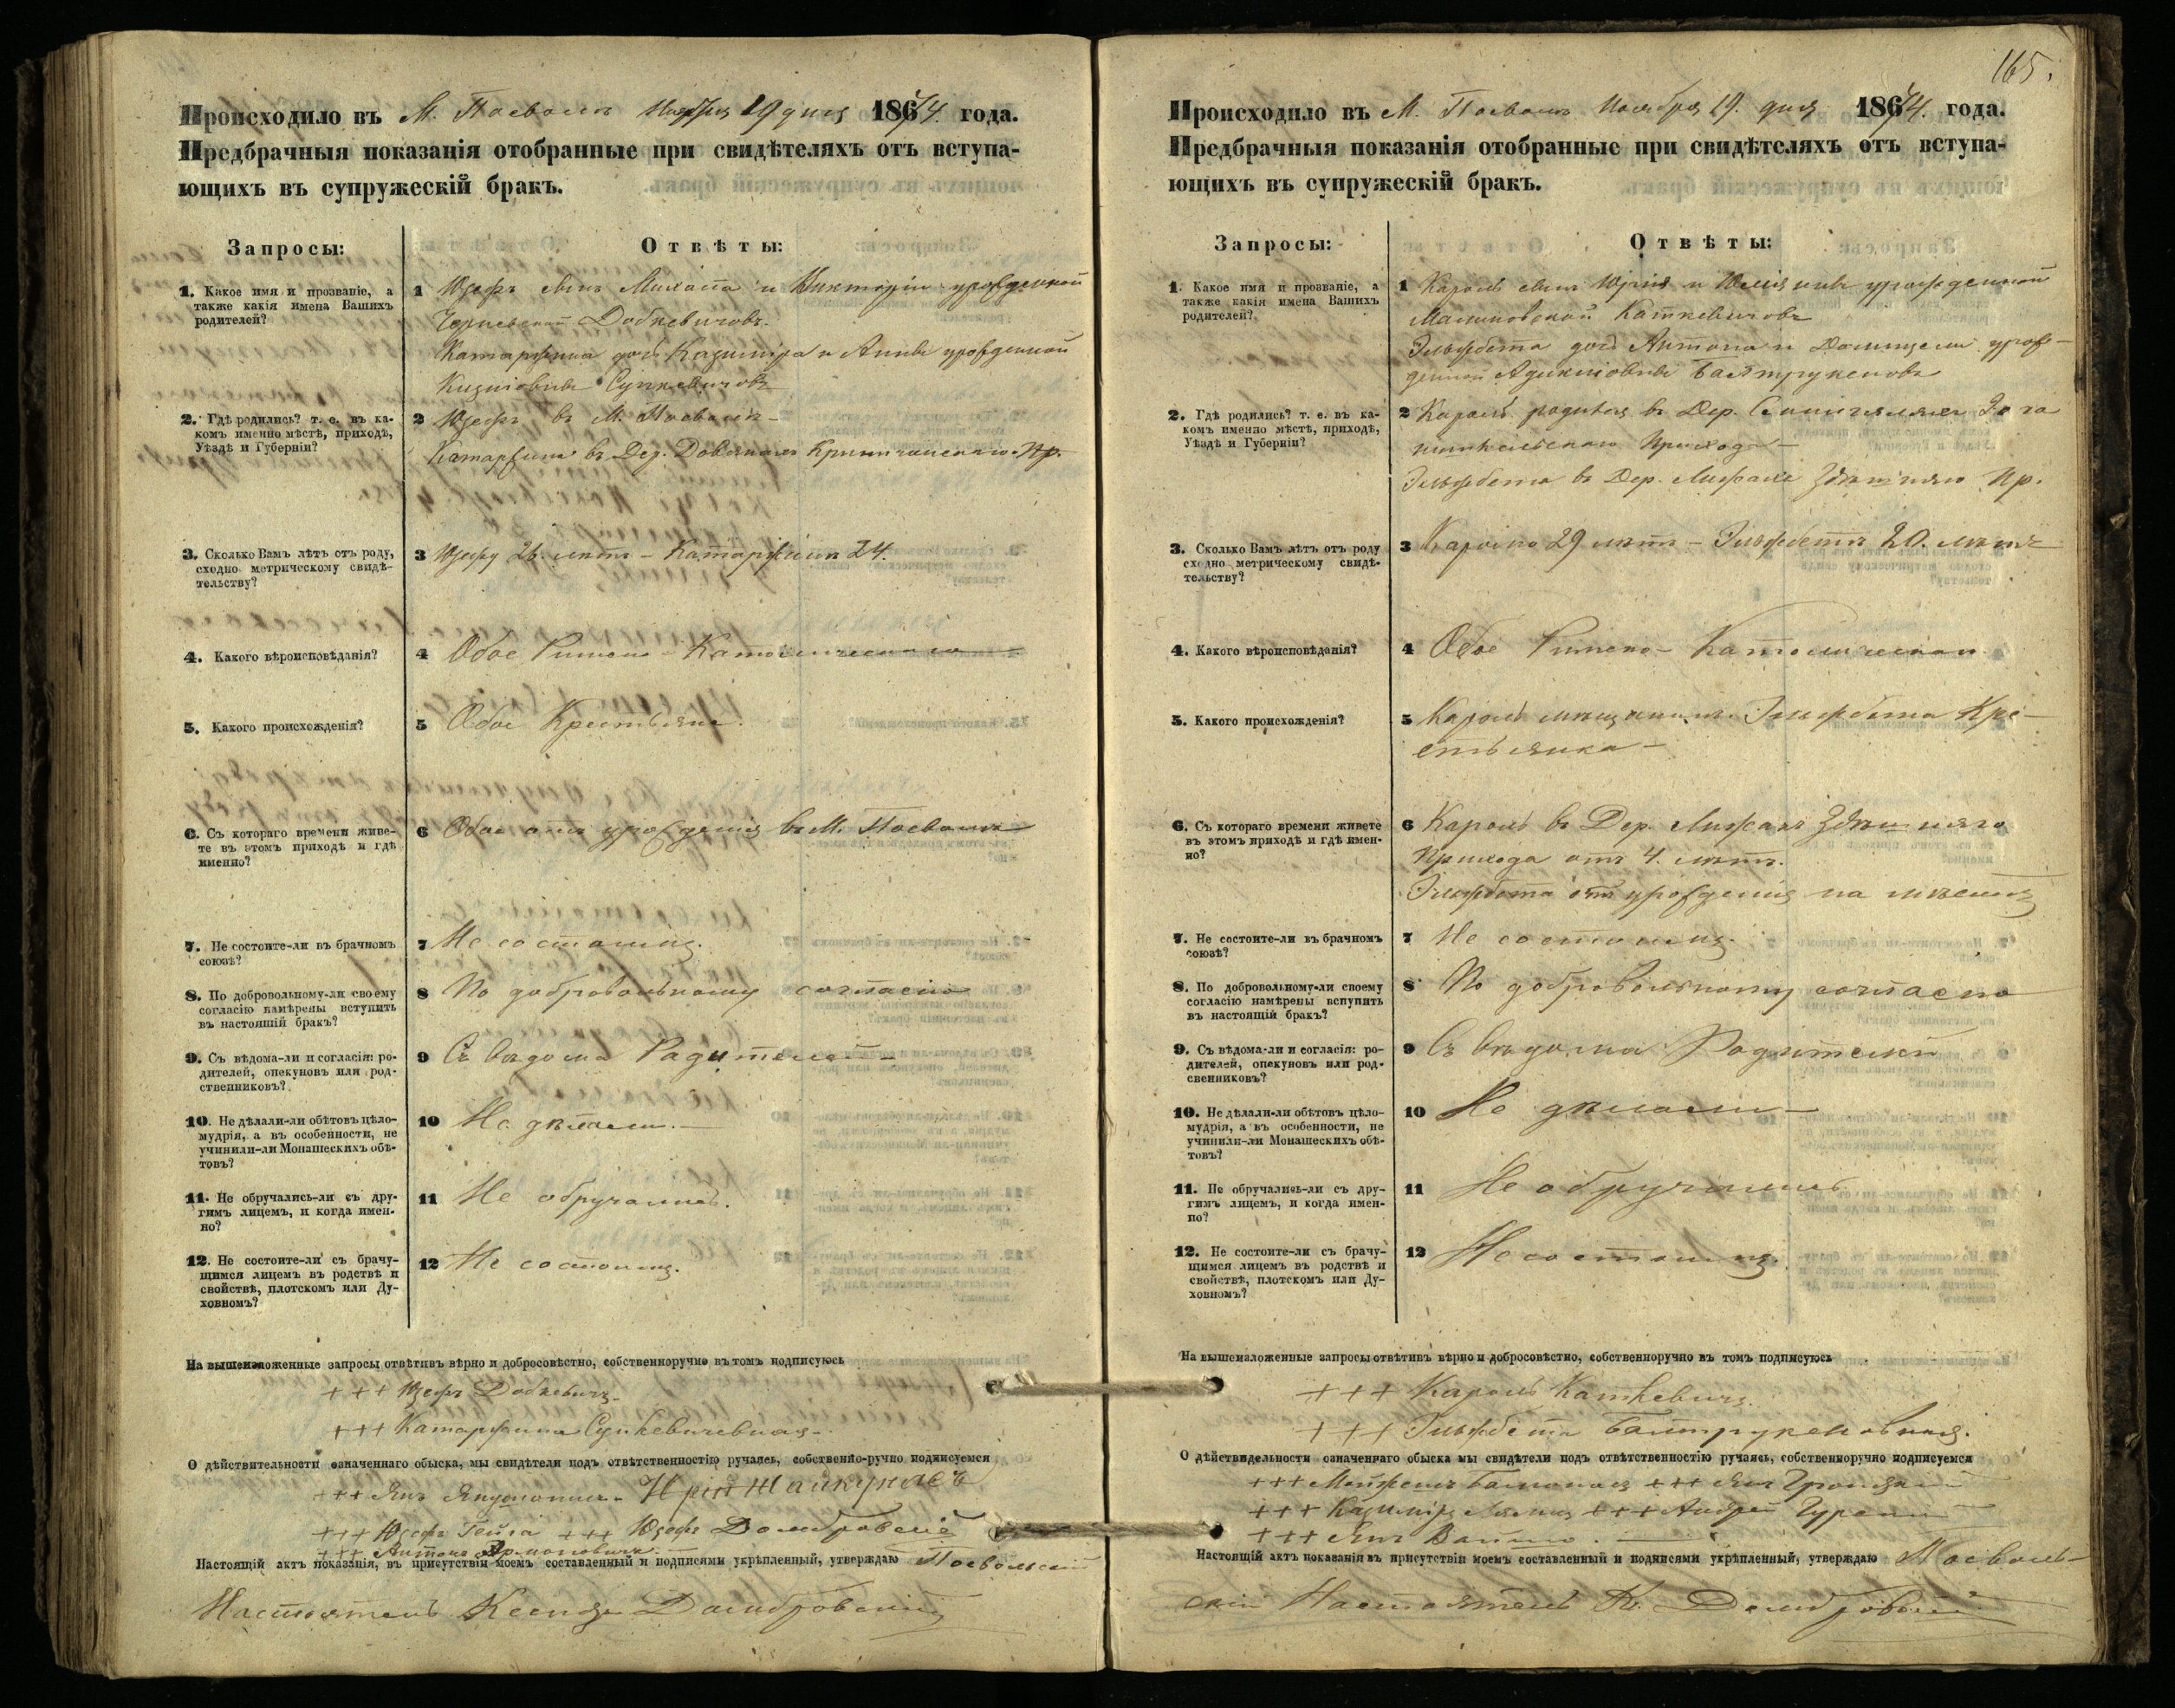 Происходило въ М. Посволь Ноября 19 дня 1864/74. года.
Предбрачныя показанія отобранные при свидѣтеляхъ отъ вступа-
ющихъ въ супружескій бракъ.
Запросы:
Отвѣты:
1. Какое имя и прозваніе, а
также какія имена Вашихъ
родителей?
1 Юзефъ сынъ Михаила и Викторіи урожденной
Добкевичовъ.
Катаржина дочь Казиміра и Анны урожденной
Сункевичовъ
2. Гдѣ родились? т. е. въ ка-
комъ именно мѣстѣ, приходѣ,
Уѣздѣ и Губерніи?
2 Юзефъ въ М. Посволь
Катаржина въ Дер. Пр.
3. Сколько Вамъ лѣтъ отъ роду,
сходно метрическому свидѣ-
тельству?
3 Юзефу 26. лѣтъ - Катаржинѣ 24.
4. Какого вѣроисповѣданія?
4 Обое Римско-Католическаго
5. Какого происхожденія?
5 Обое Крестьяне.
6. Съ котораго времени живе-
те въ этомъ приходѣ и гдѣ
именно?
6 Обое отъ урожденія въ М. Посволь
7. Не состоите-ли въ брачномъ
союзѣ?
7 Не состоимъ.
8. По добровольному-ли своему
согласію намѣрены вступить
въ настоящій бракъ?
8 По добровольному согласію
9. Съ вѣдома-ли и согласія: ро-
дителей, опекуновъ или род-
ственниковъ?
9 Съ вѣдома Родителей -
10. Не дѣлали-ли обѣтовъ цѣло-
мудрія, а въ особенности, не
учинили-ли Монашескихъ обѣ-
товъ?
10 Не дѣлали.
11. Не обручались-ли съ дру-
гимъ лицемъ, и когда имен-
но?
11 Не обручались.
12. Не состоите-ли съ брачу-
щимся лицемъ въ родствѣ и
свойствѣ, плотскомъ или Ду-
ховномъ?
12 Не состоимъ.
На вышеизложенные запросы отвѣтивъ вѣрно и добросовѣстно, собственноручно въ томъ подписуюсь
+++ Юзефъ Добкевичъ.
+++ Катаржина Сункевичевная
О дѣйствительности означеннаго обыска, мы свидѣтели подъ отвѣтственностію ручаясь, собственно-ручно подписуемся
+++ Янъ
+++ Юзефъ +++ Юзефъ Домбровскій
+++ Антонъ
Настоящій актъ показанія, въ присутствіи моемъ составленный и подписями укрѣпленный, утверждаю Посвольскій
Настоятель Ксендзъ Домбровскій
165.
Происходило въ М. Посволь Ноября 19. дня 1864/74. года.
Предбрачныя показанія отобранные при свидѣтеляхъ отъ вступа-
ющихъ въ супружескій бракъ.
Запросы:
Отвѣты:
1. Какое имя и прозваніе, а
также какія имена Вашихъ
родителей?
1 Кароль сынъ и урожденной
Малиновской Каткевичовъ
Эльжбета дочь Антона и Домицели урож-
денной Балтрукеновъ
2. Гдѣ родились? т. е. въ ка-
комъ именно мѣстѣ, приходѣ,
Уѣздѣ и Губерніи?
2 Кароль родился въ Дер.
Прихода -
Эльжбета въ Дер. здѣшняго Пр.
3. Сколько Вамъ лѣтъ отъ роду
сходно метрическому свидѣ-
тельству?
3 Каролю 29 лѣтъ - Эльжбетѣ 20. лѣтъ
4. Какого вѣроисповѣданія?
4 Обое Римско-Католическаго
5. Какого происхожденія?
5 Кароль мѣщанинъ. Эльжбета Кре-
стьянка -
6. Съ котораго времени живете
въ этомъ приходѣ и гдѣ имен-
но?
6 Кароль въ Дер. здѣшняго
Прихода отъ 4. лѣтъ.
Эльжбета отъ урожденія на мѣстѣ
7. Не состоите-ли въ брачномъ
союзѣ?
7 Не состоимъ.
8. По добровольному-ли своему
согласію намѣрены вступить
въ настоящій бракъ?
8 По добровольному согласію
9. Съ вѣдома-ли и согласія: ро-
дителей, опекуновъ или род-
свенниковъ?
9 Съ вѣдома Родителей
10. Не дѣлали-ли обѣтовъ цѣло-
мудрія, а въ особенности, не
учинили-ли Монашескихъ обѣ-
товъ?
10 Не дѣлали -
11. Не обручались-ли съ дру-
гимъ лицемъ, и когда имен-
но?
11 Не обручались
12. Не состоите-ли съ брачу-
щимся лицемъ въ родствѣ и
свойствѣ, плотскомъ или Ду-
ховномъ?
12 Не состоимъ.
На вышеизложенные запросы отвѣтивъ вѣрно и добросовѣстно, собственноручно въ томъ подписуюсь
+++ Кароль Каткевичъ.
+++ Эльжбета Балтрукеновная.
О дѣйствидельности означеннаго обыска мы свидѣтели подъ отвѣтственностію ручаясь, собственноручно подписуемся
+++ +++ Янъ
+++ Казиміръ +++ Андрей
+++ Янъ
Настоящій актъ показанія въ присутствіи моемъ составленный и подписями укрѣпленный, утверждаю Посволь-
скій Настоятель К. Домбровскій